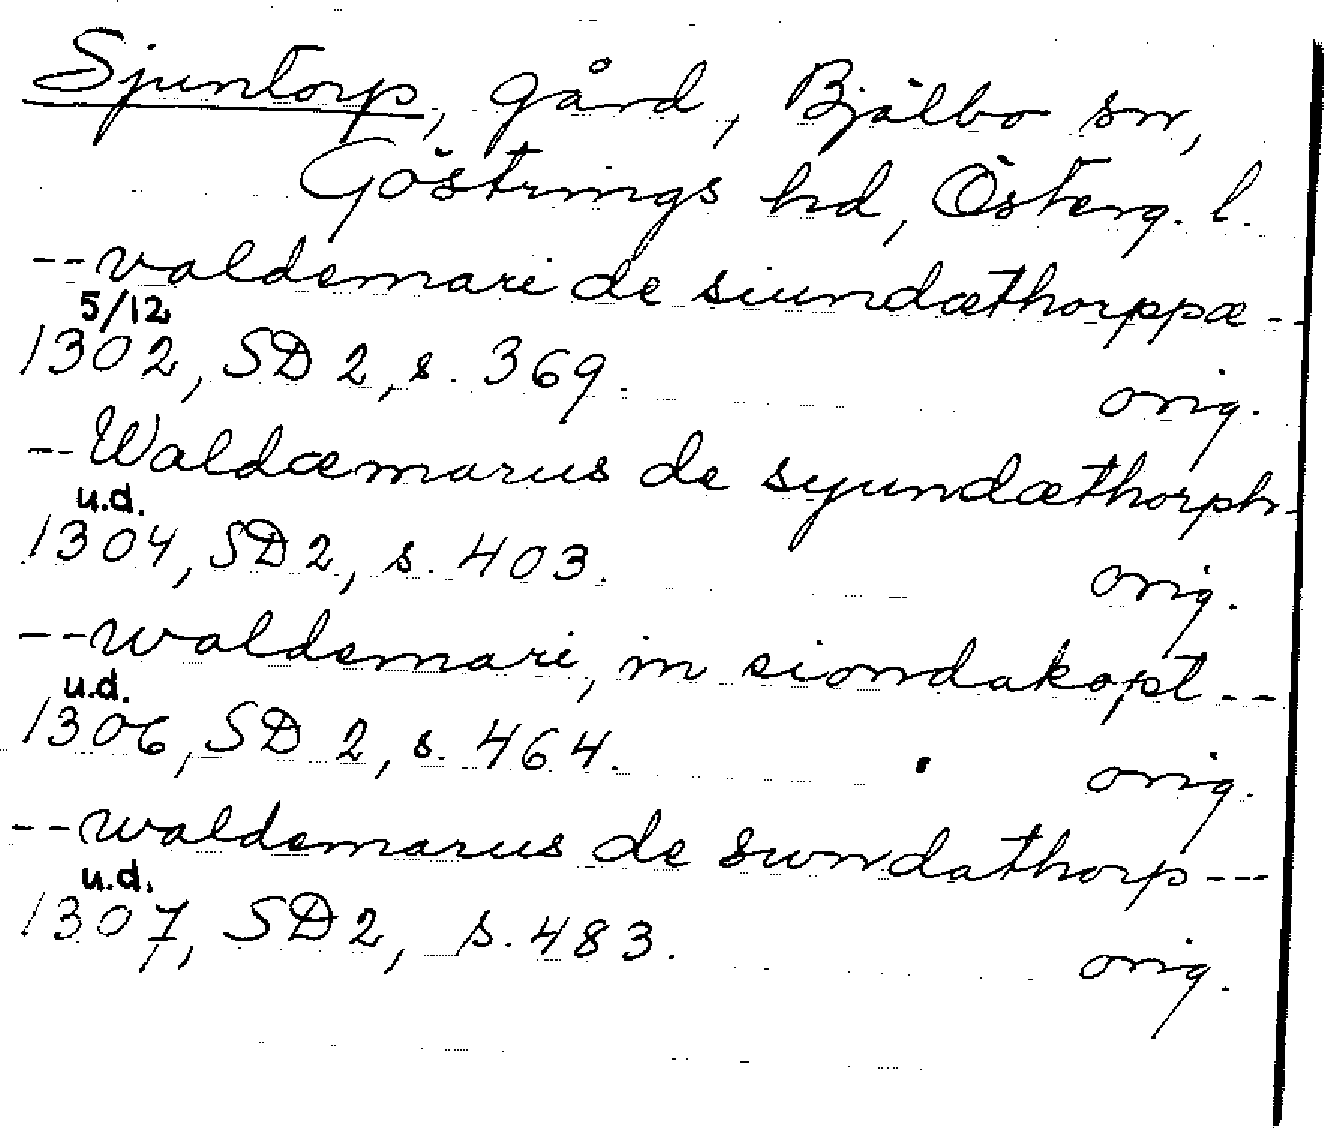 Sjuntorp, gård, Bjälbo sn,
Göstrings hd, Österg. l.
--valdemari de siundæthorppæ--
5/12
1302, SD 2, s. 369. orig.
--Waldæmarus de syundæthorph-
u.d.
1304, SD 2, s. 403. orig.
--waldemari, in siondakopt---
u.d.
1306, SD 2, s. 464. orig.
--waldemarus de swndathorp---
u.d.
1307, SD 2, s. 483. orig.